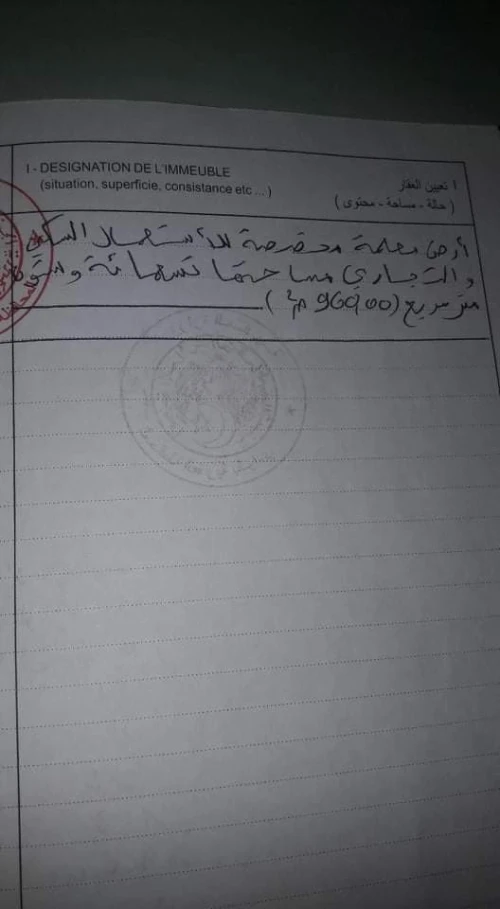 I - DESIGNATION DE L'IMMEUBLE
(situation, superficie, consistance etc ... )
I تعيين العقار
( حالة - مساحة - محتوى )
أرض معلمة مخصصة للأستعمال السكني
والتجاري مساحتها تسعمائة وستون
متر مربع (960,00 م2)